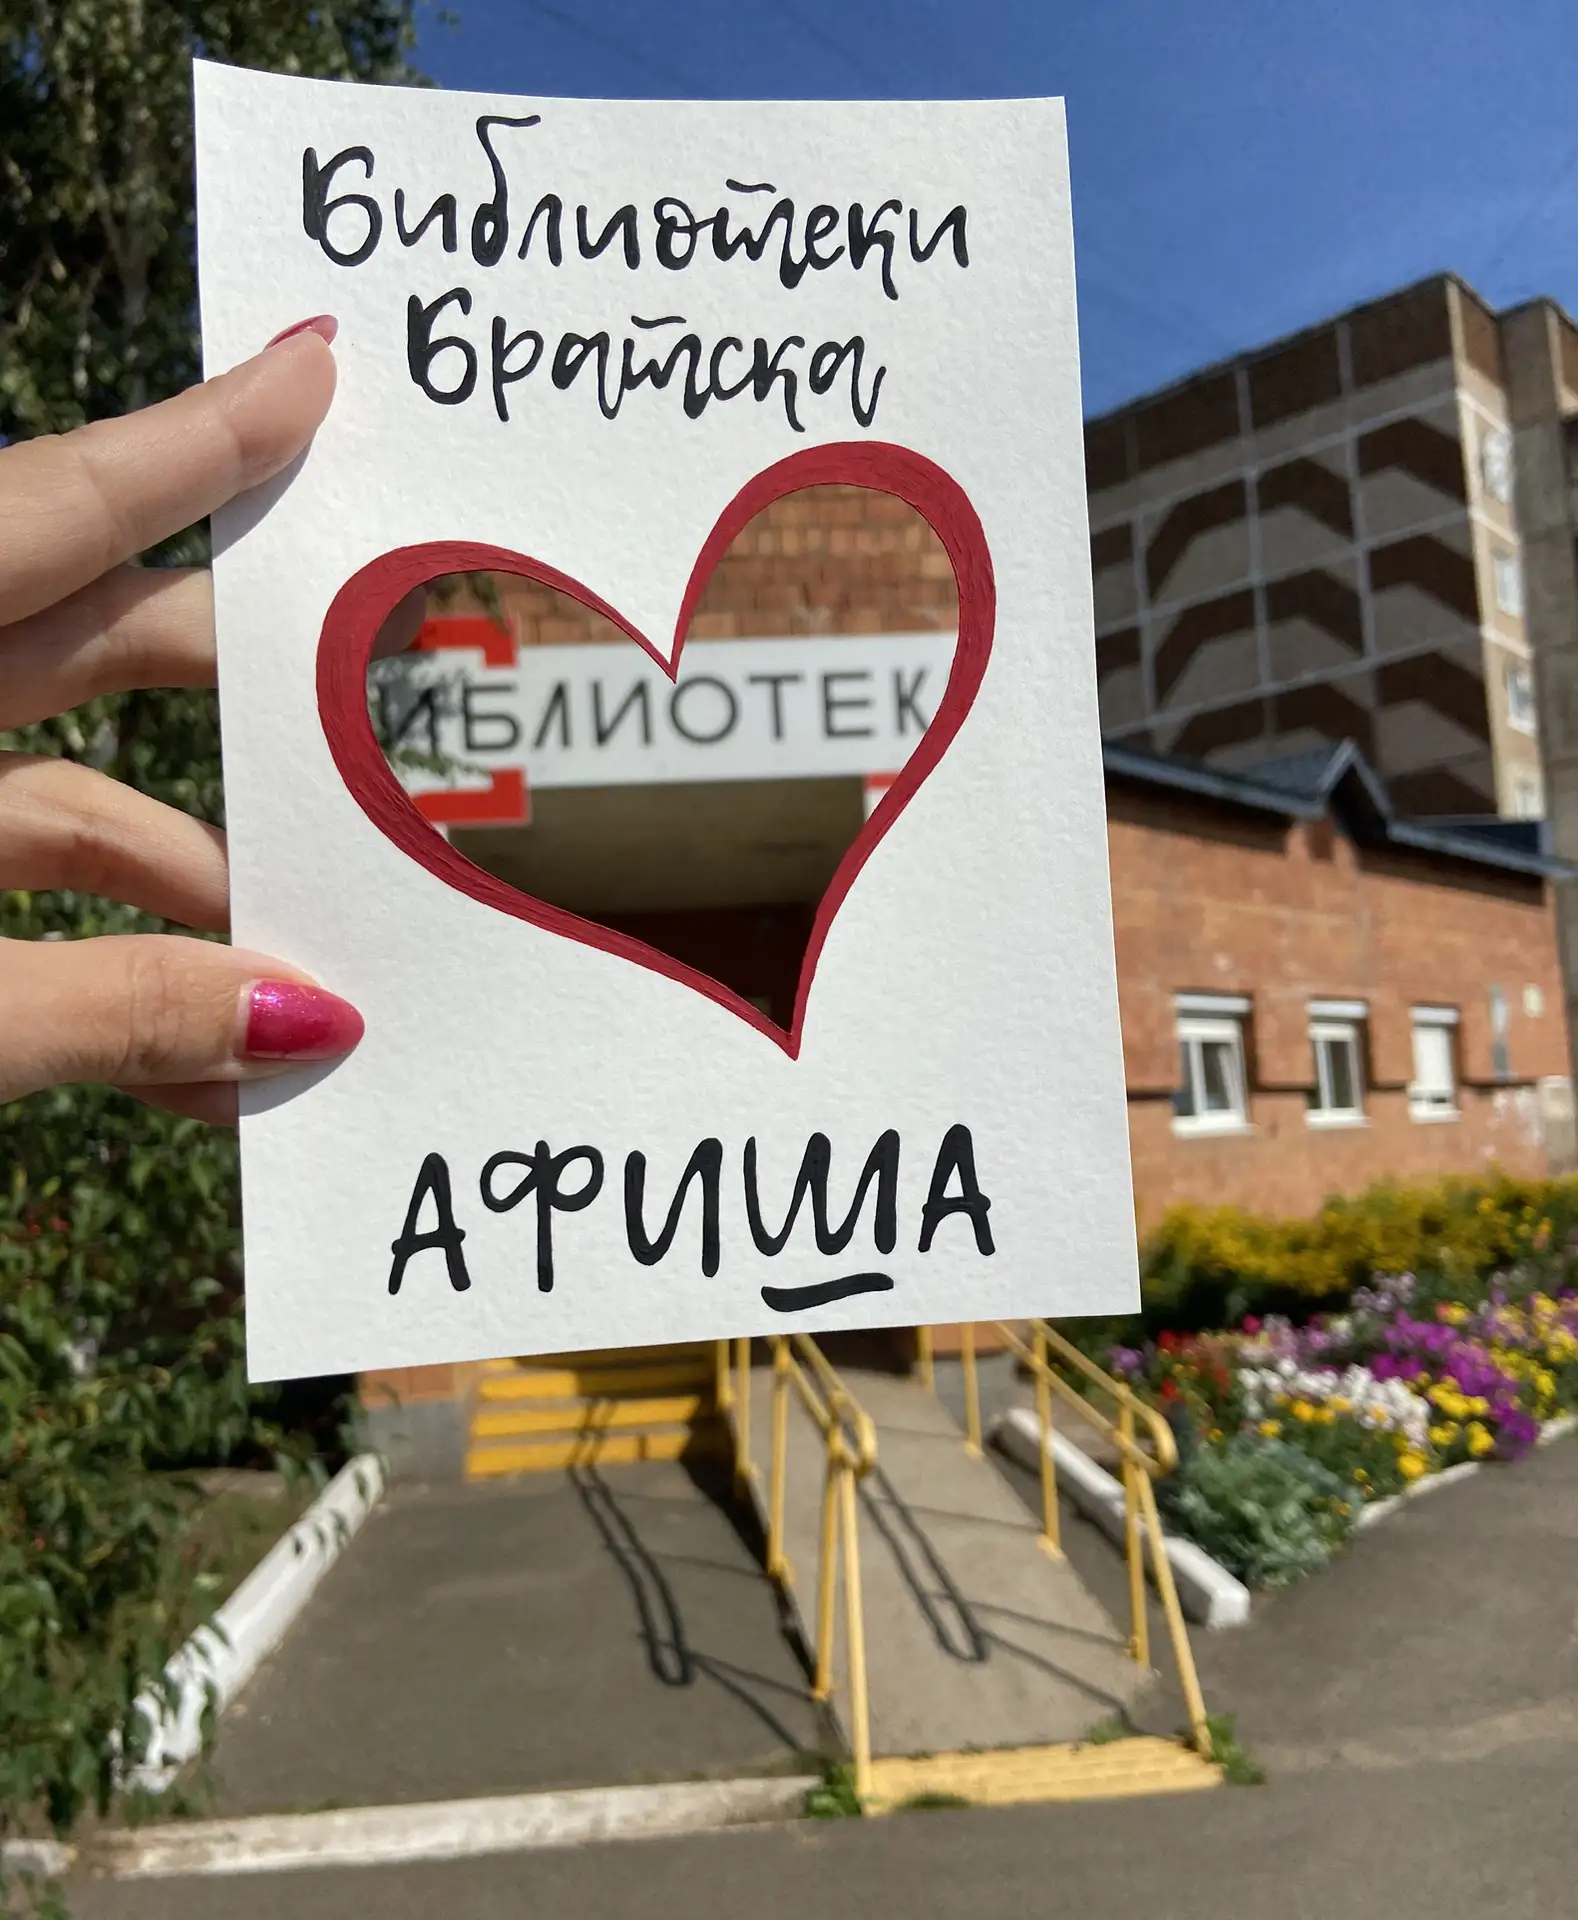 Библиотеки
Братска
ИБЛИОТЕК
АФИША